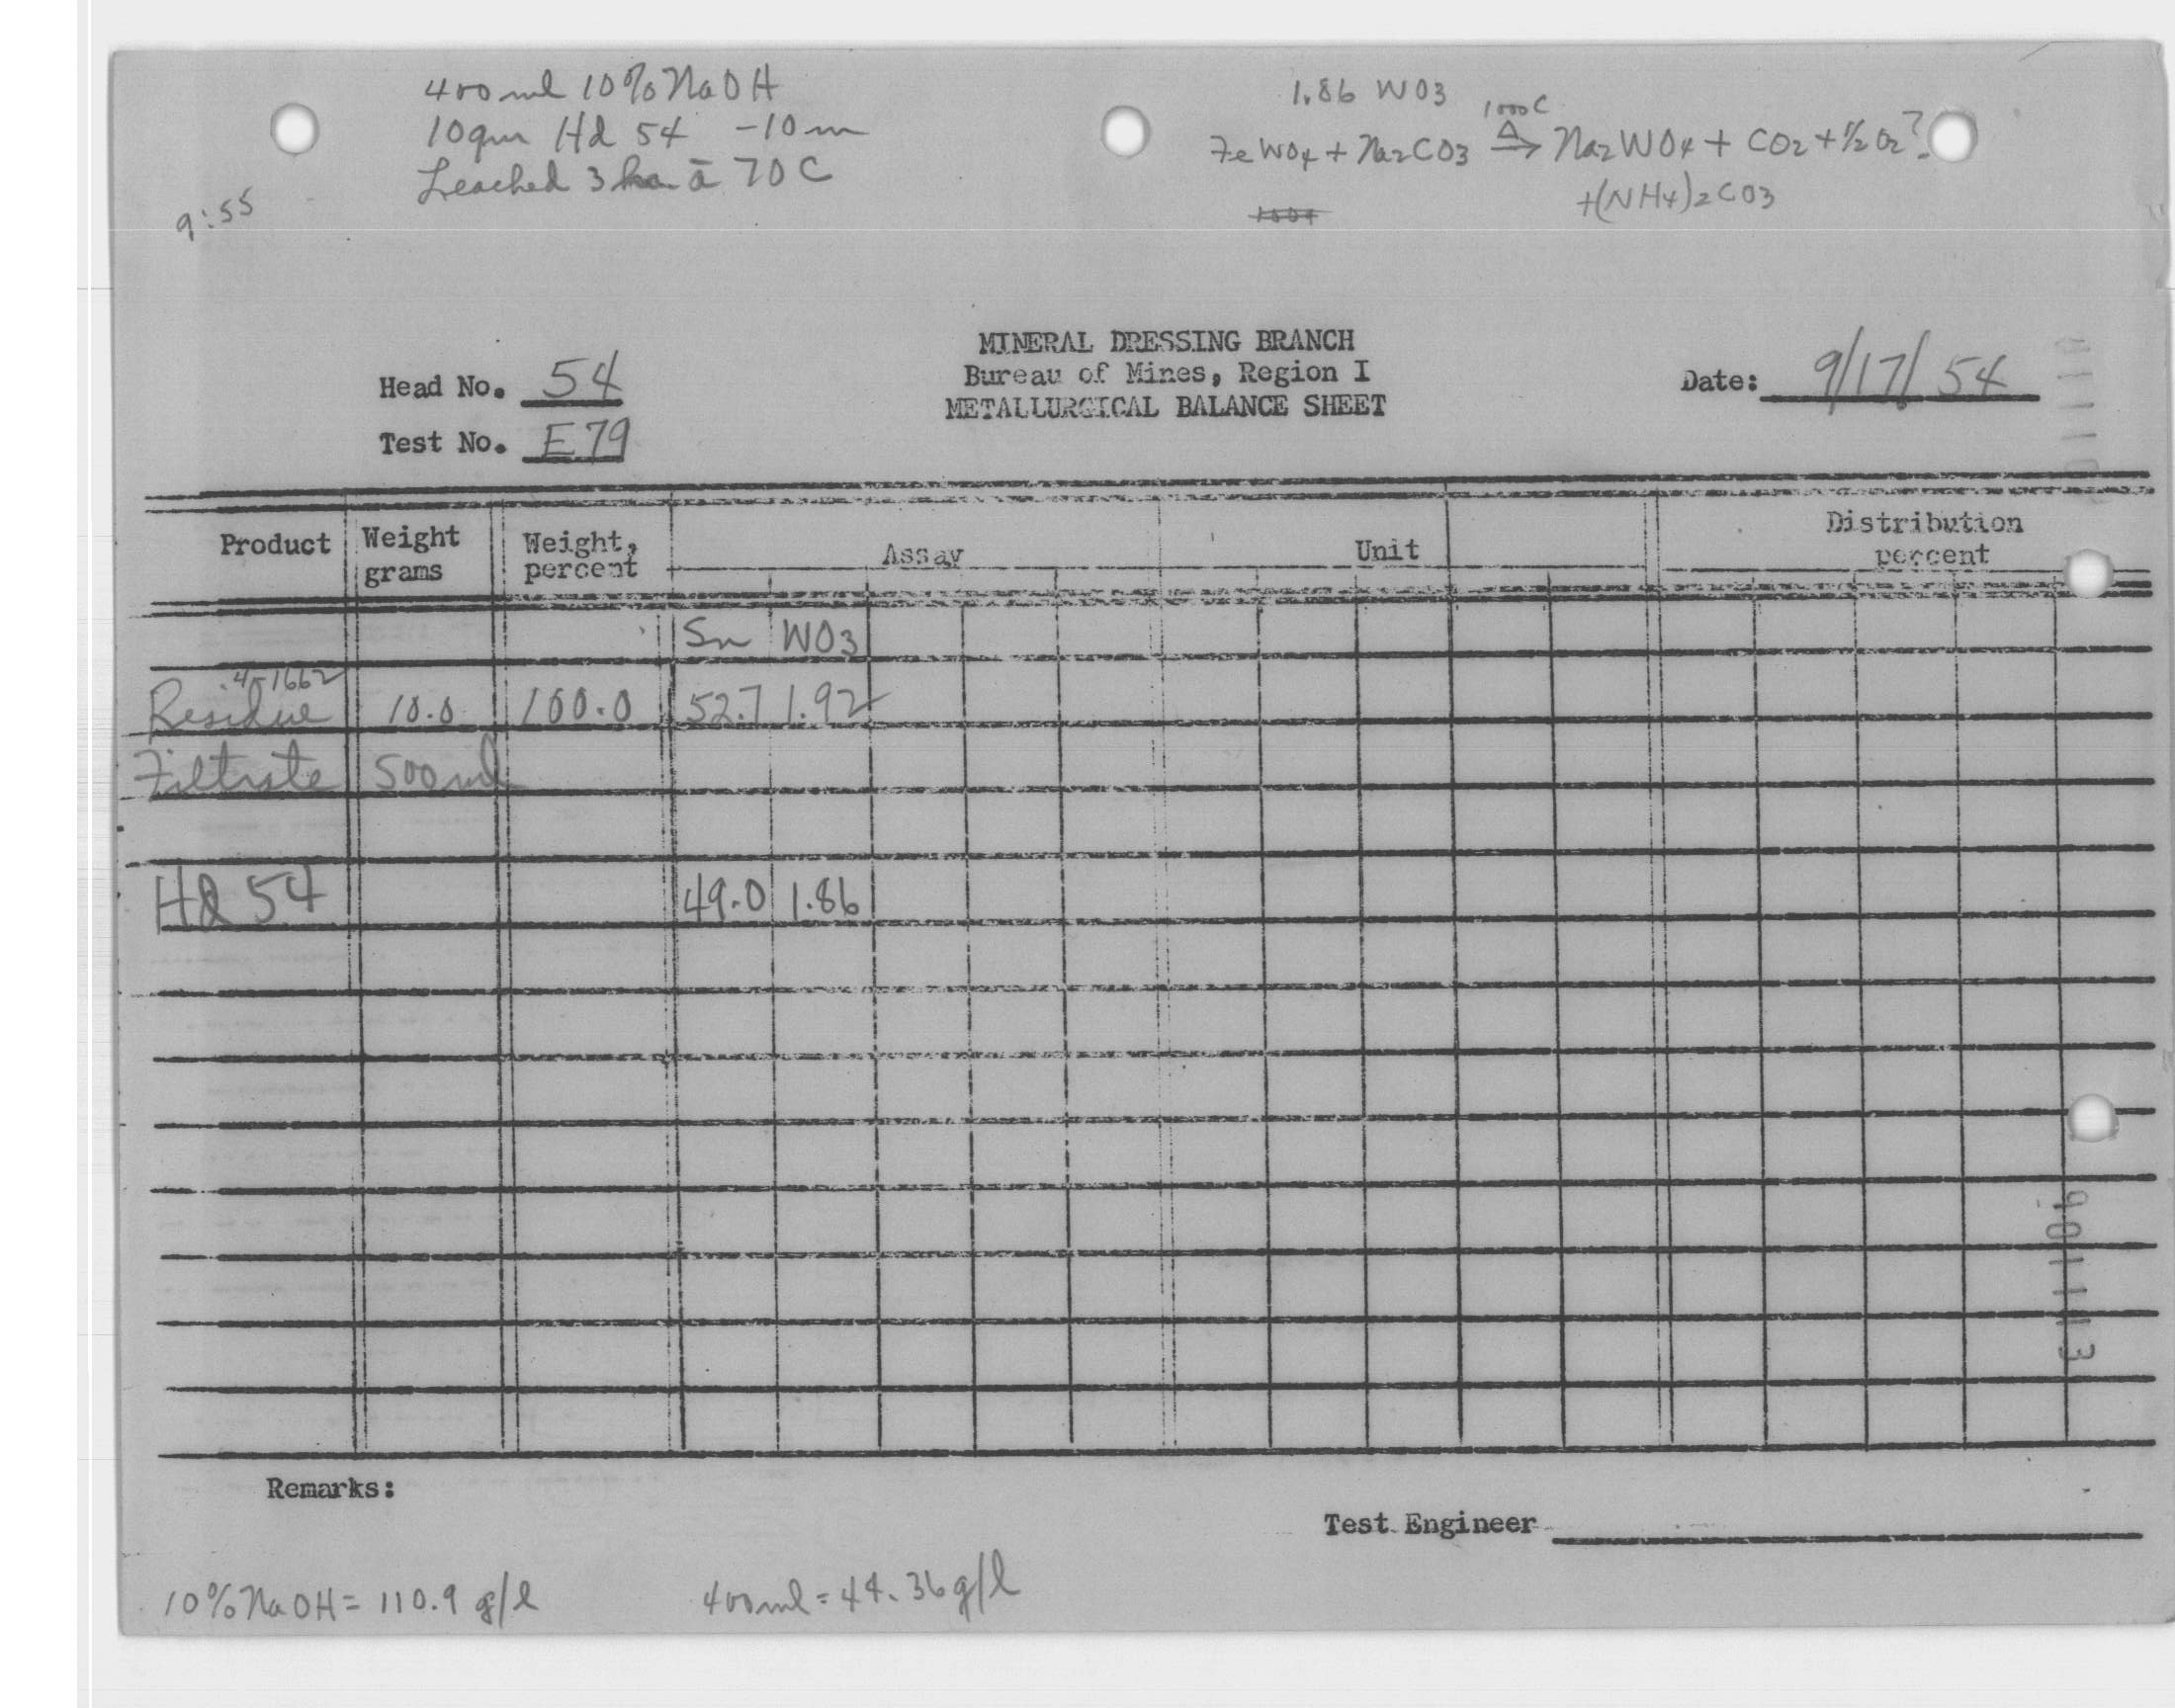 400 ml 10% NaOH
10 gm Hd 54 -10 m
Leached 3 hr ā 70 C
9:55
1.86 WO3
1000 C
FeWO4 + Na2CO3 Δ→ Na2WO4 + CO2 + ½ O2?
+(NH4)2CO3
MINERAL DRESSING BRANCH
Bureau of Mines, Region I
METALLURGICAL BALANCE SHEET
Head No. 54
Test No. E79
Date: 9/17/54
Product Weight grams Weight, percent Assay Unit Distribution percent
Sn WO3
4-1662
Residue 10.0 100.0 52.7 1.92
Filtrate 500 ml
Hd 54 49.0 1.86
Remarks:
Test Engineer
10% NaOH = 110.9 g/l 400 ml = 44.36 g/l